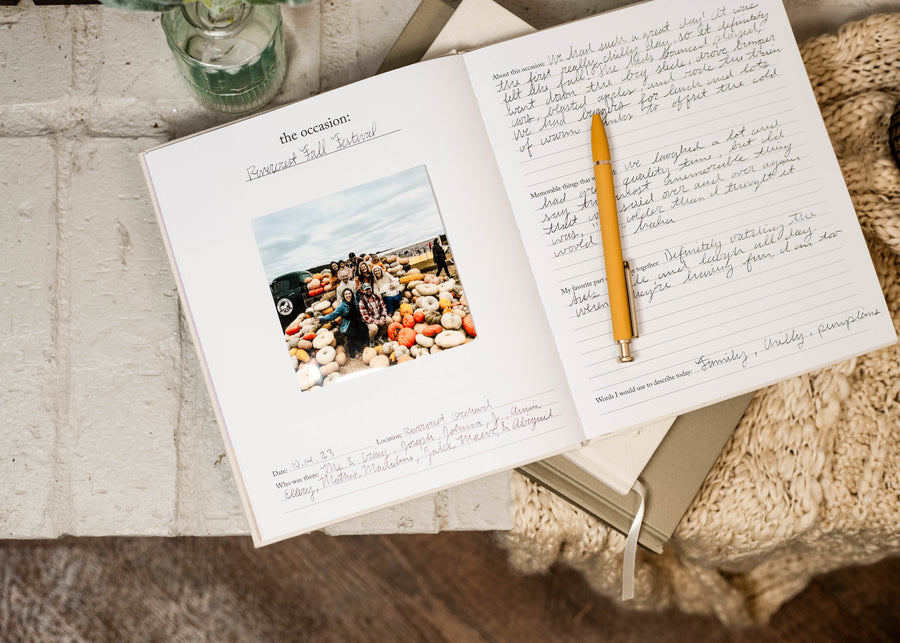 the occasion:
Rivercrest Fall Festival
Date: 10.14.23 Location: Rivercrest Orchard
Who was there: Me & Craig, Joseph, Joshua, Jr., Anna,
Ellery, Mattie, Madeline, Jake, Maeve, & Abigail
About this occasion: We had such a great day! It was
the first really chilly day, so it definitely
felt like fall! The kids bounced, played,
went down the big slide, drove bumper
cars, blasted apples, and rode the train.
We had burgers for lunch and lots
of warm drinks to offset the cold
Memorable things that we laughed a lot and
had quality time, but did
say the most memorable thing they
said over and over again
was, " colder than I thought it
would " haha
My favorite part together: Definitely watching the
kids and laugh all day.
When they're having fun, I am too
Words I would use to describe today: Family, chilly, pumpkins